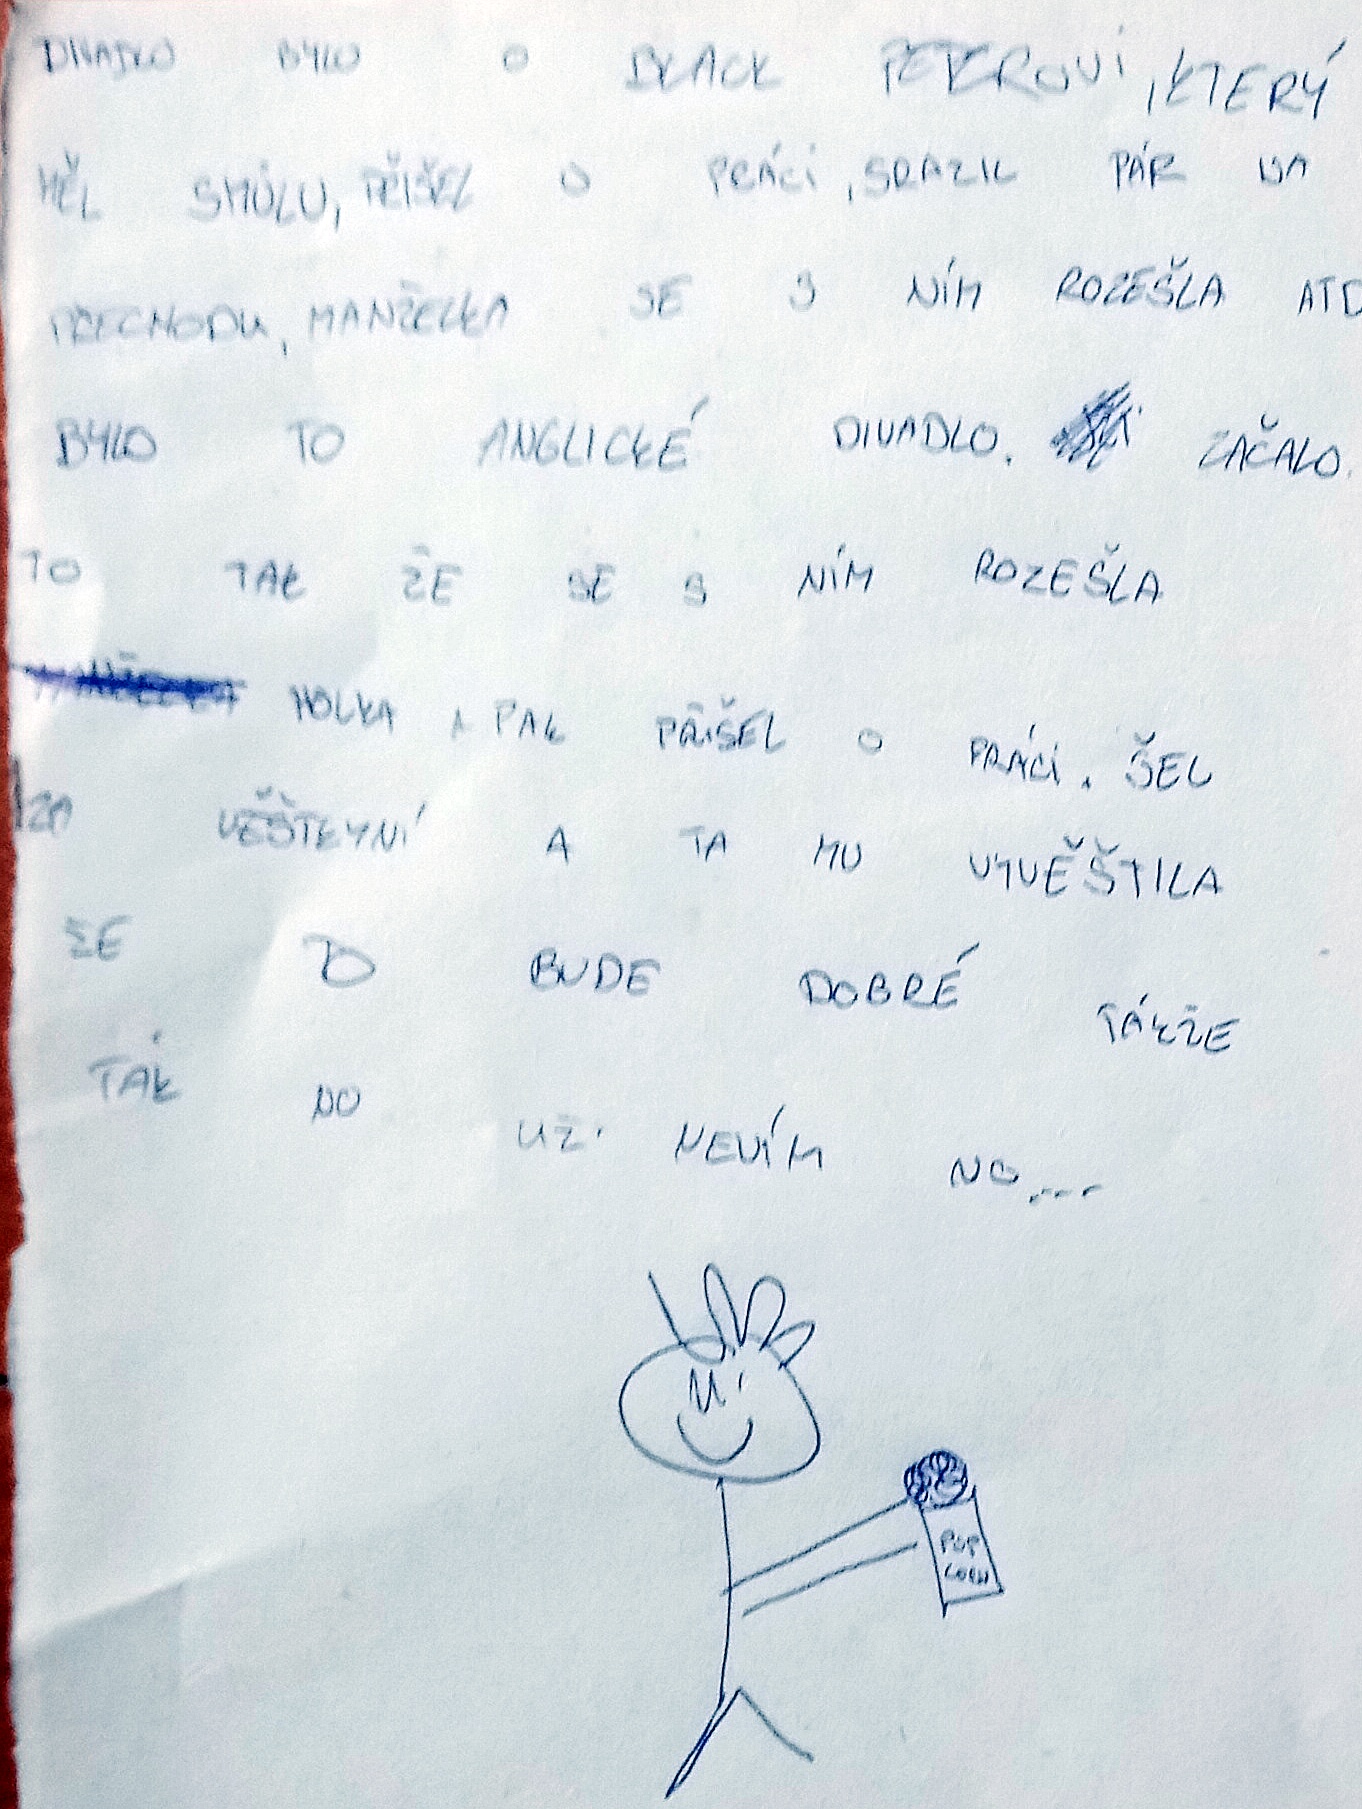 DIVADLO BYLO O BLACK PETEROVI, KTERÝ
MĚL SMŮLU, PŘIŠEL O PRÁCI, SRAZIL PÁR NA
PŘECHODU, MANŽELKA SE S NÍM ROZEŠLA ATD
BYLO TO ANGLICKÉ DIVADLO. ZAČALO
TO TAK ŽE SE S NÍM ROZEŠLA
MANŽELKA HOLKA A PAK PŘIŠEL O PRÁCI. ŠEL
ZA VĚŠTKYNÍ A TA MU VYVĚŠTILA
ŽE TO BUDE DOBRÉ TÁKŽE
TÁK NO UŽ NEVÍM NO....
POP
CORN